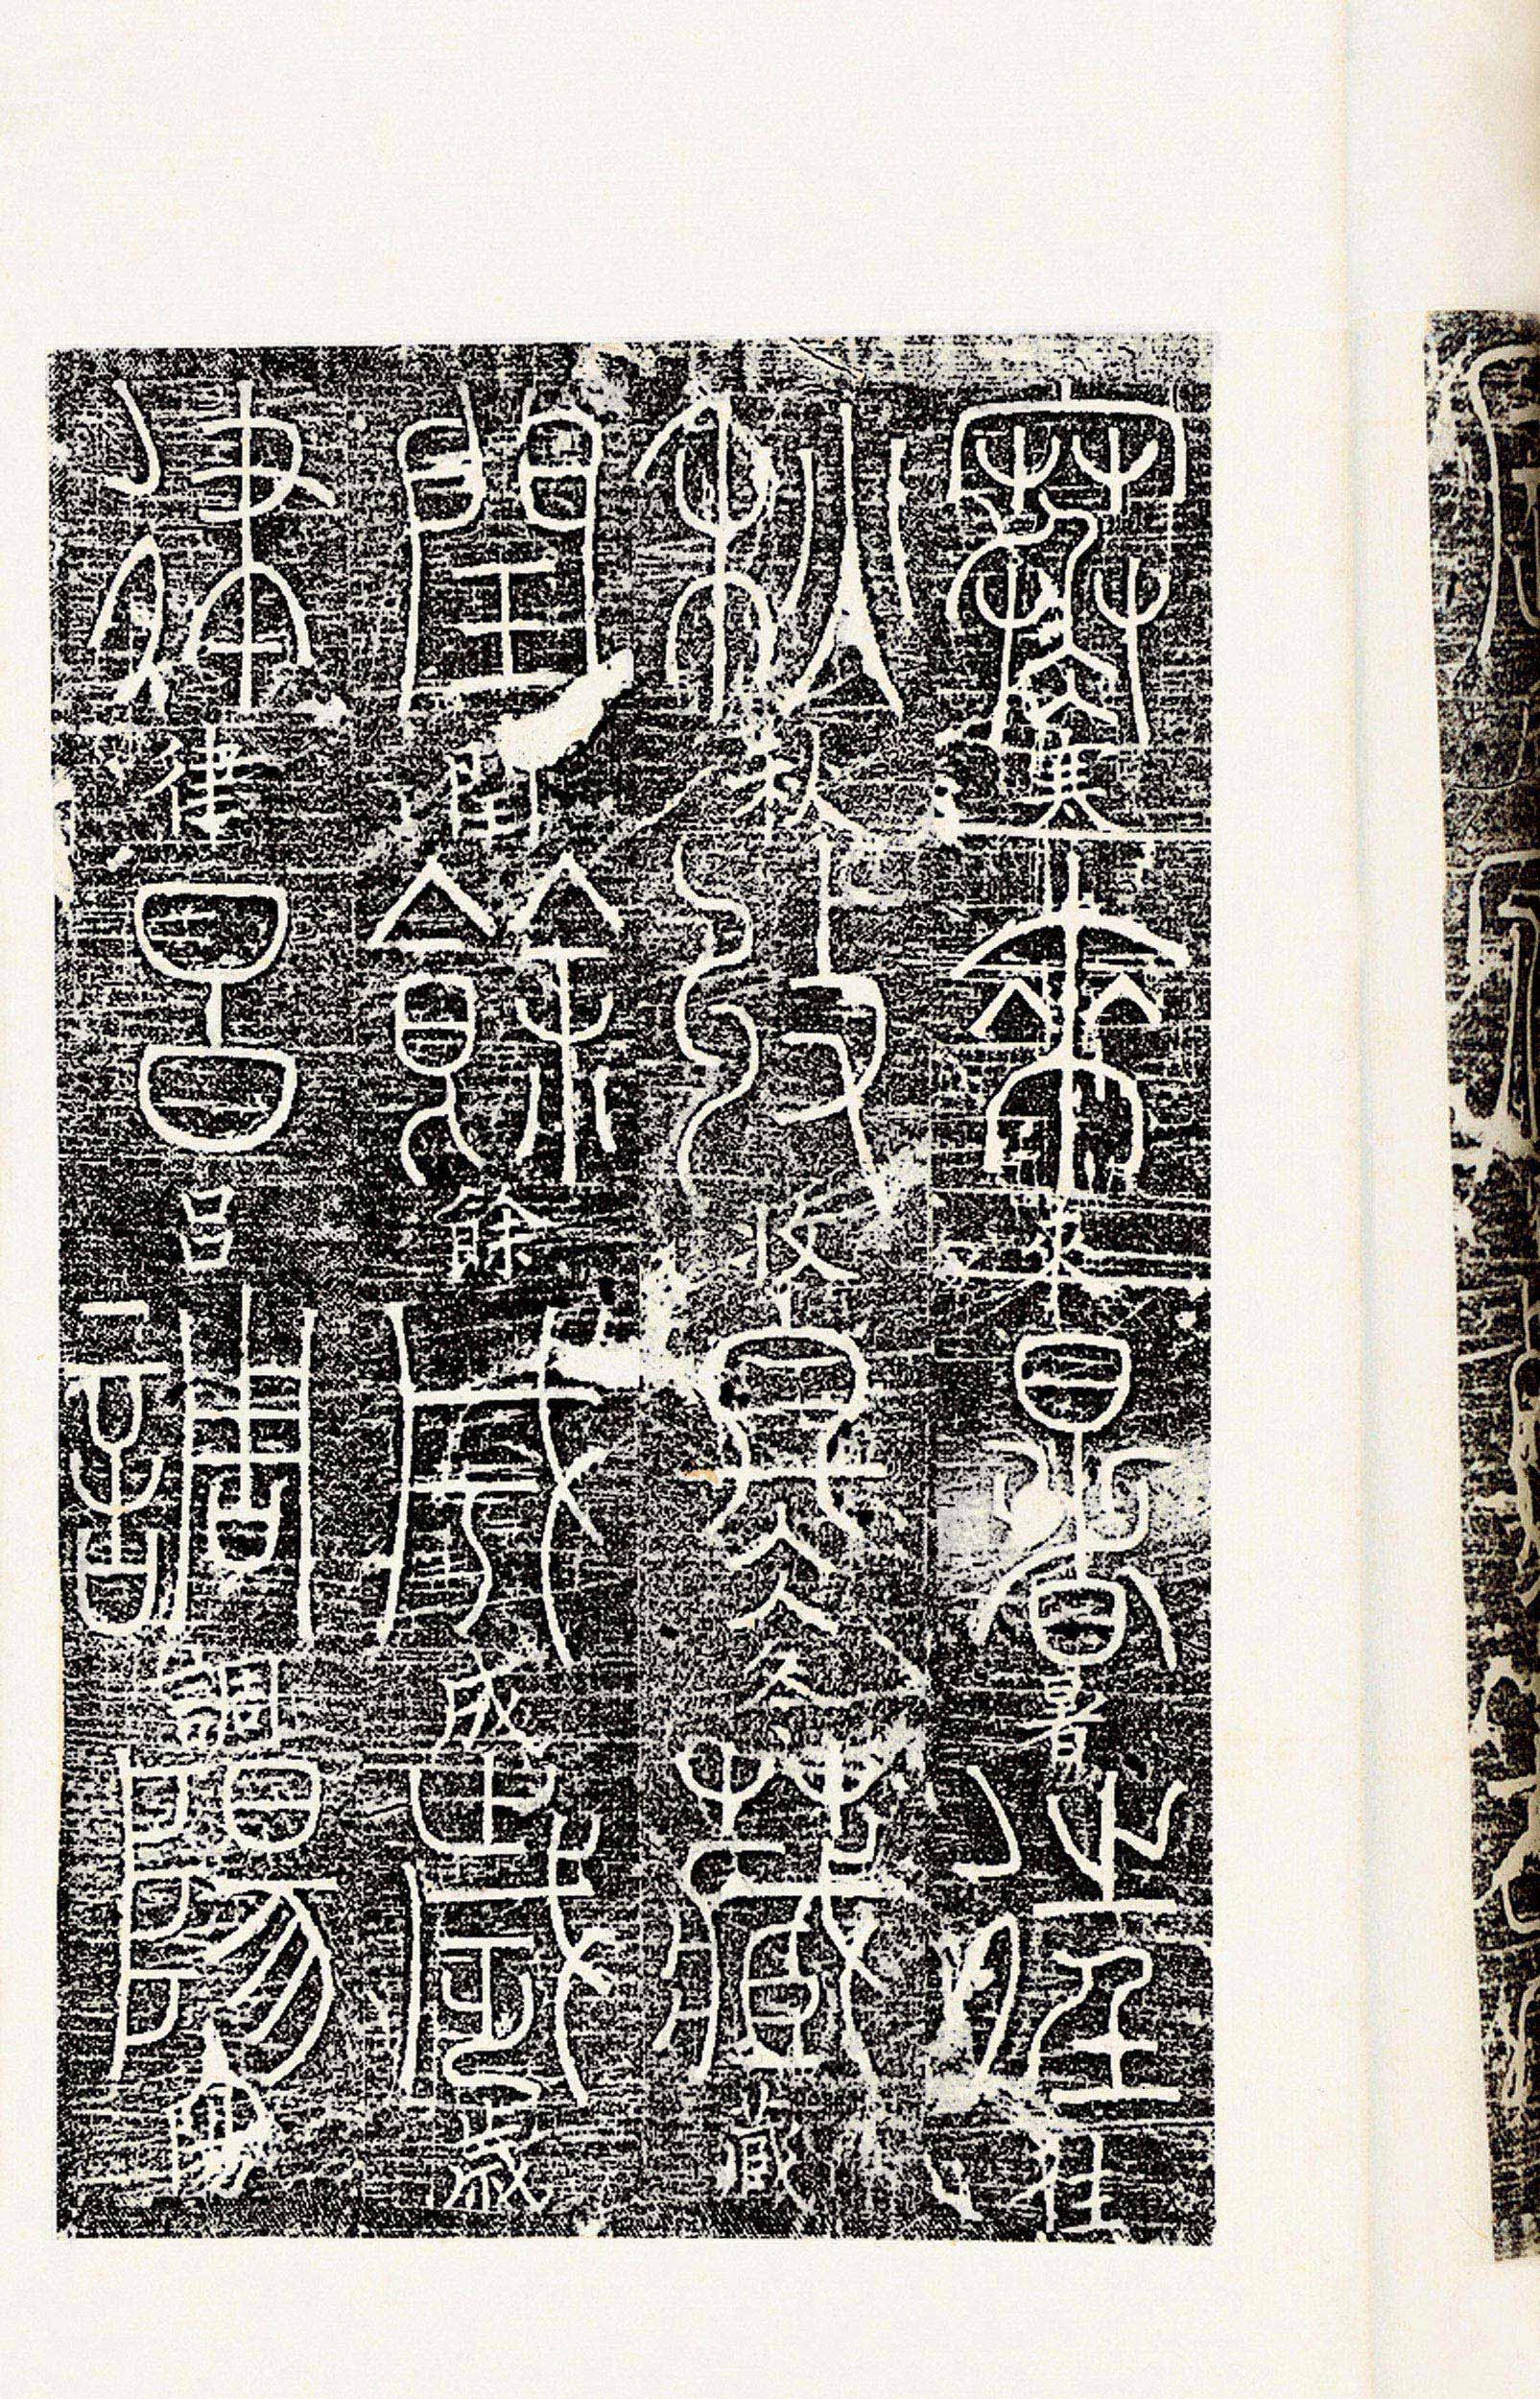 寒寒來來暑暑往往
秋秋收收冬冬藏藏
閏閏餘餘成成歲歲
律律呂呂調調陽陽